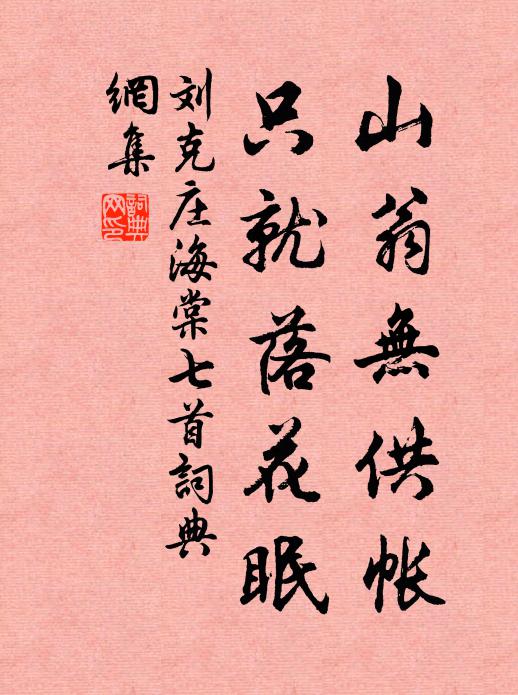 山翁無供帐
只就落花眠
刘克庄海棠七首詞典
網集
詞典
网印